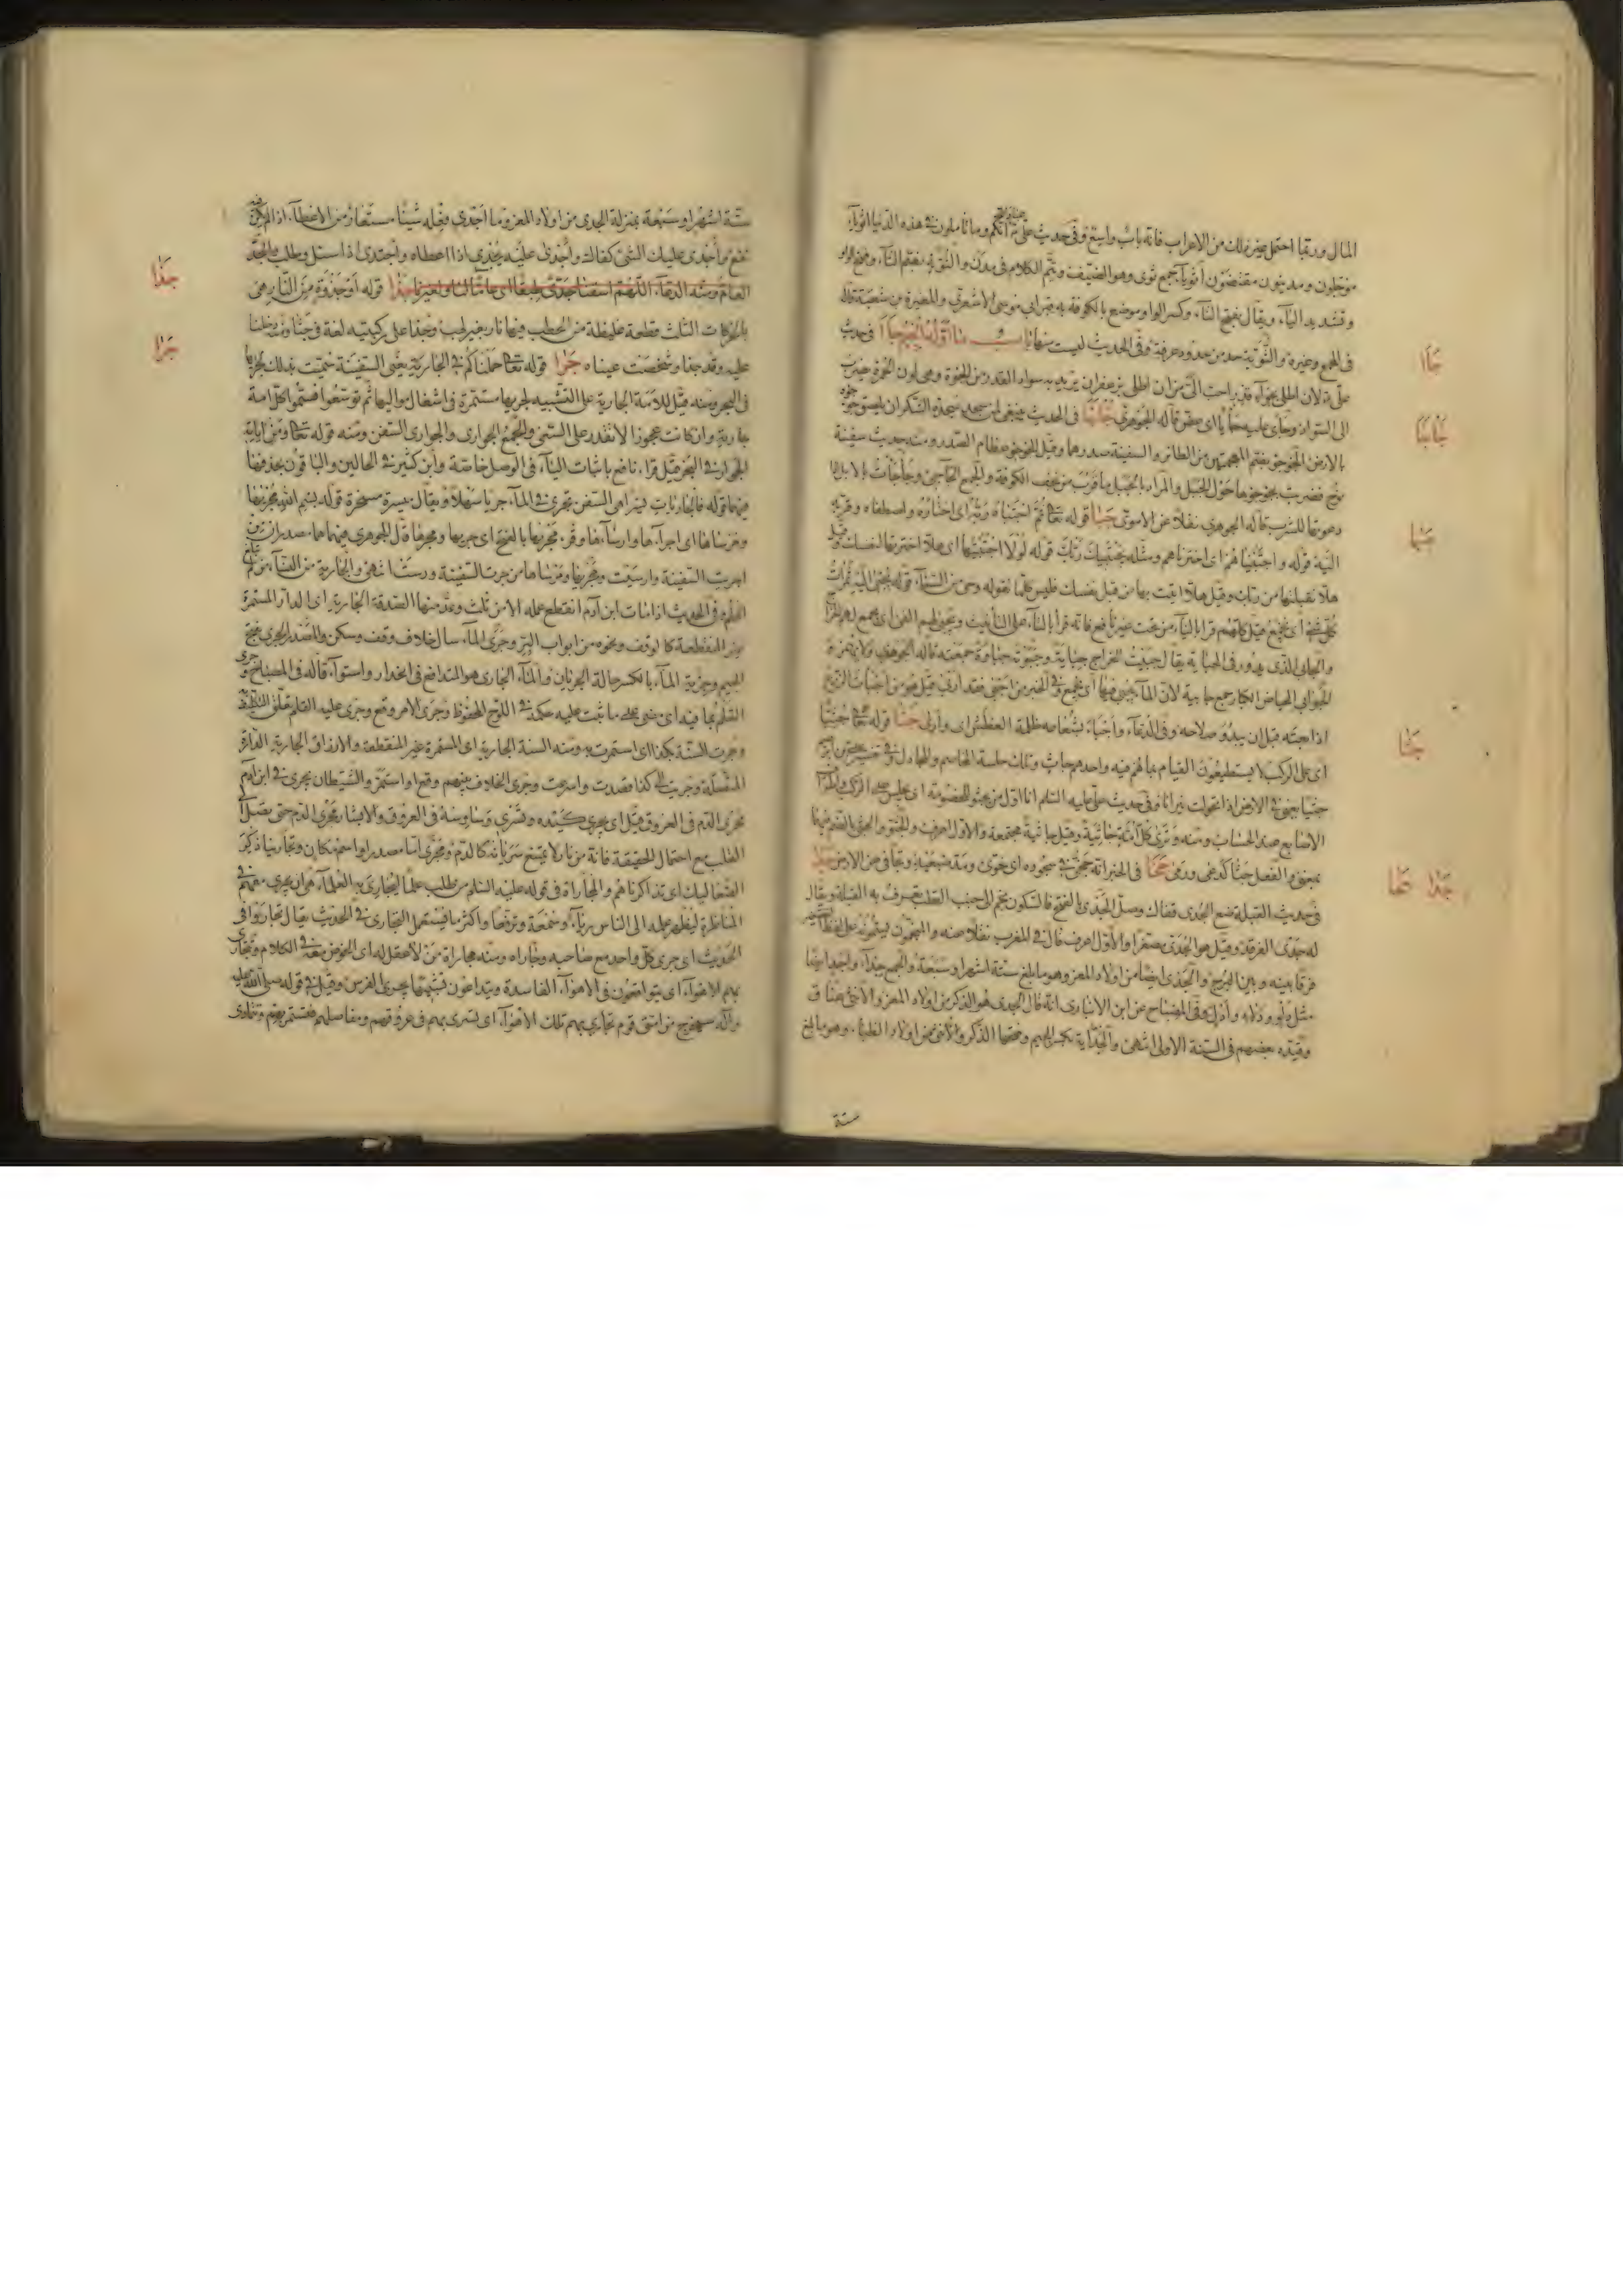 المال وربما احتمل غير ذلك من الاعراب فانه باب واسع وفي حديث علي ع انكم وما تأملون في هذه الدنيا اثوياء
مؤجلون ومدينون مقتضون أثوياء جمع ثوى وهو الضيف وتم الكلام في مدن والثوية بضم الثاء وفتح الواو
وتشديد الياء ويقال بفتح الثاء وكسر الواو موضع بالكوفة به قبر ابي موسى الاشعري والمغيرة بن شعبة قاله
في المجمع وغيره والثوية حد من حدود عرفة وفي الحديث ليست منها باب ما اوله الجيم جاا في حديث
علي ع لان اطلى بجواء قدر احب الي من ان اطلى بزعفران يريد به سواد القدر من الجؤوة وهي لون الحمرة يضرب
الى السواد وجأى عليه جأيا اى عض قاله الجوهري جاجا في الحديث
بالارض الجوجو بضم المعجمتين من الطائر والسفينة صدرهما وقيل الجوجو عظام الصدر ومنه حديث سفينة
نوح فضربت بجوجوها حول الجبل والمراد بالجبل ما قرب من نجف الكوفة والجمع الجآجئ وجأجأت بالابل اذا
دعوتها للشرب قاله الجوهري نقلا عن الاموي جبا قوله تعا ثم اجتباه ربه اى اختاره واصطفاه وقربه
اليه قوله واجتبيناهم اى اخترناهم ومثله يجتبيك ربك قوله لولا اجتبيتها اى هلا اخترتها لنفسك وقيل
هلا تقبلتها من ربك وقيل هلا اتيت بها من قبل نفسك فليس كلما تقوله وحى من السماء قوله يجبى اليه ثمرات
كل شئ اى يجمع قيل كلهم قرأ بالياء من تحت غير نافع فانه قرأ بالتاء على التأنيث ويجبى لهم الفئ اى يجمع لهم الخراج
والجابى الذى يدور في الجباية يقال جبيت الخراج جباية وجبوته جباوة جمعته قاله الجوهري ولا يهمز و
الجوابي الحياض الكبار جمع جابية لان الماء يجبى فيها اى يجمع وفي الخبر من اجبى فقد اربى قيل هو من اجبأت الزرع
اذا بعته قبل ان يبدو صلاحه وفي الدعاء جثا قوله تعا جثيا
اى على الركب لا يستطيعون القيام بما هم فيه واحدهم جاث وتلك جلسة المخاصم والمجادل وفي
جثيا يعنى في الارض اذا تحولت نيرانا وفي حديث علي عليه السلام انا اول من يجثو للخصومة اى يجلس على الركب واطراف
الاصابع عند الحساب ومنه وترى كل امة جاثية وقيل جاثية مجتمعة والاول اعرف والجثو والجثى بالضم فيهما
بمعنى والفعل جثا كدعى ورمى جخا في الخبر انه جخى في سجوده اى خوى ومد ضبعيه وتجافى عن الارض جدا
في حديث القبلة ضع الجدى قفاك وصل الجدى بالفتح فالسكون نجم الى جنب القطب تعرف به القبلة ويقال
له جدى الفرقد وقيل هو الجدى مصغرا والاول اعرف قال في المغرب نقلا عنه والمنجمون يسمونه على لفظ التصغير
فرقا بينه وبين البرج والجدى ايضا من اولاد المعز وهو ما بلغ ستة اشهر او سبعة والجمع جداء واجد ايضا
مثل دلو ودلاء وأدل وفي المصباح عن ابن الانباري انه قال الجدى هو الذكر من اولاد المعز والانثى عناق
وقيده بعضهم في السنة الاولى انتهى والجداية بكسر الجيم وفتحها الذكر والانثى من اولاد الظباء وهو ما بلغ
ستة
جاا
جاجا
جبا
جثا
جدا جخا
ستة اشهر او سبعة بمنزلة الجدى من اولاد المعز وما اجدى فعله شيئا مستعار من الاعطاء اذا لم يكن فيه
نفع وأجدى عليك الشئ كفاك وأجدى عليه يجدى اذا اعطاه واجتدى اذا سئل وطلب والجدا
العام ومنه الدعاء اللهم اسقنا جدى طبقا جذا قوله أو جذوة من النار هى
بالحركات الثلث قطعة غليظة من الحطب فيها نار بغير لهب وجذا على ركبتيه لغة في جثا
عليه وقد جذا وشخصت عيناه جرا قوله تعا حملناكم في الجارية يعنى السفينة سميت بذلك لجريها
في البحر ومنه قيل للامة الجارية على التشبيه لجريها مستمرة في اشغال مواليها ثم توسعوا فسموا كل امة
جارية وان كانت عجوزا لا تقدر على السعى والجمع الجوارى والجوارى السفن ومنه قوله تعا ومن اياته
الجوار في البحر قيل قرأ نافع باثبات الياء في الوصل خاصة وابن كثير في الحالين والباقون بحذفها
فيهما قوله فالجاريات يسرا هى السفن تجرى في الماء جريا سهلا ويقال ميسرة مسخرة قوله بسم الله مجريها
ومرساها اى اجراءها وارساءها وقرئ مجريها بالفتح اى جريها ومجراها قال الجوهري فيهما هما مصدران من
اجريت السفينة وارسيت ومجريها ومرساها من جرت السفينة ورست انتهى والجارية من النساء من لم تبلغ
الحلم وفي الحديث اذا مات ابن آدم انقطع عمله الا من ثلث وعد منها الصدقة الجارية اى الدارة المستمرة
غير المنقطعة كالوقف ونحوه من ابواب البر وجرى الماء سال خلاف وقف وسكن والمصدر الجرى بفتح
الجيم وجرية الماء بالكسر حالة الجريان والماء الجارى هو المتدافع في انحدار واستواء قاله في المصباح وجرى
القلم بما فيه اى مضى على ما ثبت عليه حكمه في اللوح المحفوظ وجرى الامر وقع وجرى عليه القلم
وجرت السنة بكذا اى استمرت به ومنه السنة الجارية اى المستمرة غير المنقطعة والارزاق الجارية الدارة
المتصلة وجريت الى كذا قصدت واسرعت وجرى الخلاف بينهم وقع او استمر والشيطان يجرى في ابن ادم
مجرى الدم في العروق قيل اى يجرى كيده وتسرى وساوسه في العروق والابشار مجرى الدم حتى تصل الى
القلب مع احتمال الحقيقة فانه من نار لا يمتنع سريانه كالدم ومجرى اما مصدر او اسم مكان وتجارينا ذكر
الصعاليك اى تذاكرناهم والمجاراة في قوله عليه السلام من طلب علما ليجارى به العلماء هو ان يجرى معهم في
المناظرة ليظهر علمه الى الناس رياء وسمعة وترفعا واكثر ما يستعمل التجارى في الحديث يقال تجاروا في
الحديث اى جرى كل واحد مع صاحبه وجاراه ومنه مجاراة من لا عقل له اى الخوض معه في الكلام وتتجارى
بهم الاهواء اى يتواقعون في الاهواء الفاسدة ويتداعون تشبيها بجرى الفرس وقيل في قوله صلى الله عليه
وآله سيخرج من امتى قوم تجارى بهم تلك الاهواء اى تسرى بهم في عروقهم ومفاصلهم فتستمر بهم وتتمادى
جذا
جرا